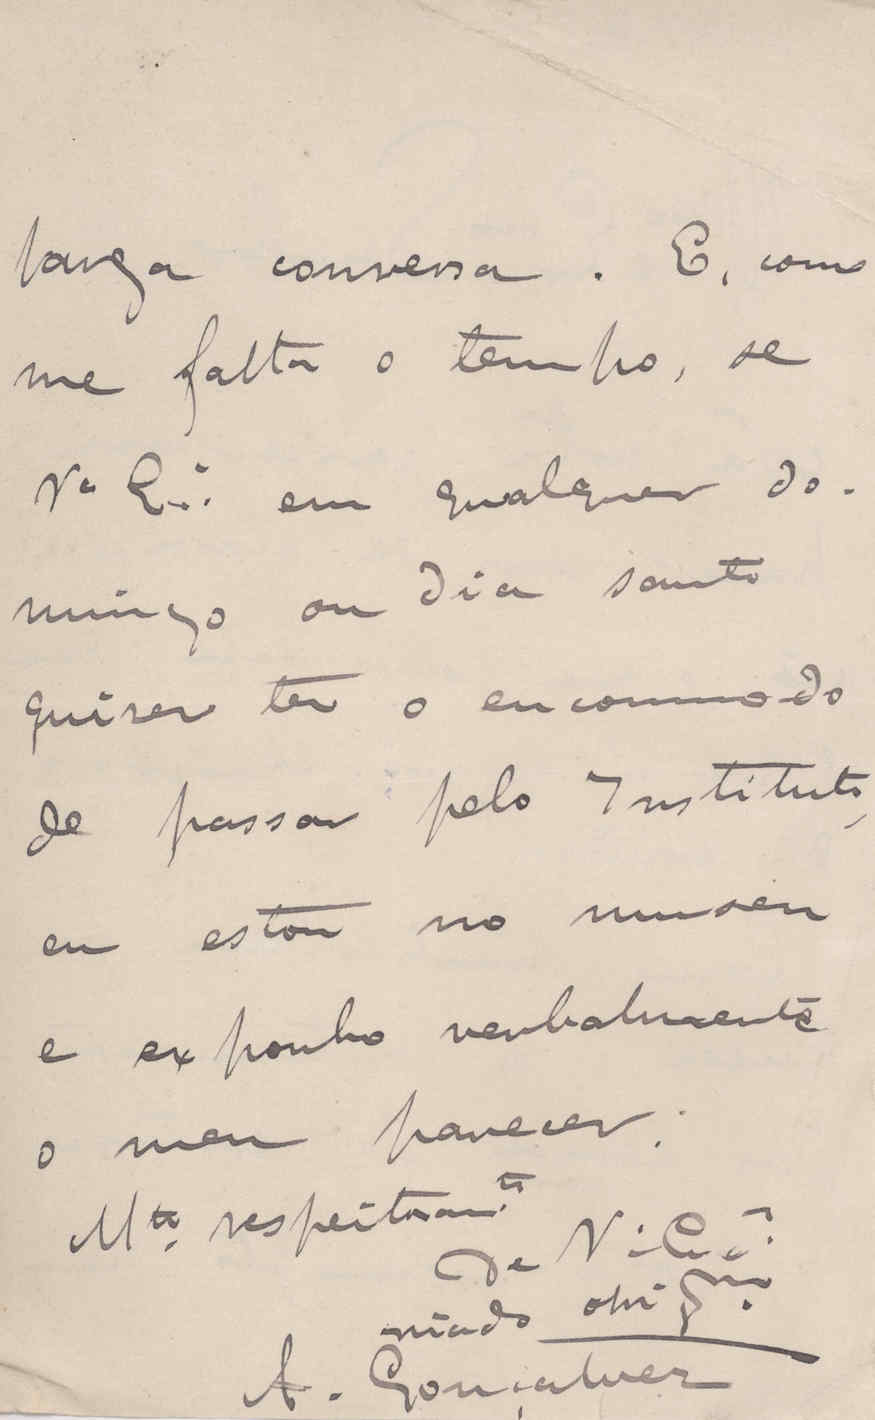 larga conversa. E, como
me falta o tempo, se
Vª Ex.ª em qualquer do-
mingo ou dia santo
quiser ter o encommodo
de passar pelo Instituto,
eu estou no museu
e exponho verbalmente
o meu parecer.
Mto. respeitosam.te
De V. Ex.ª
criado obrig.mo
A. Gonçalves